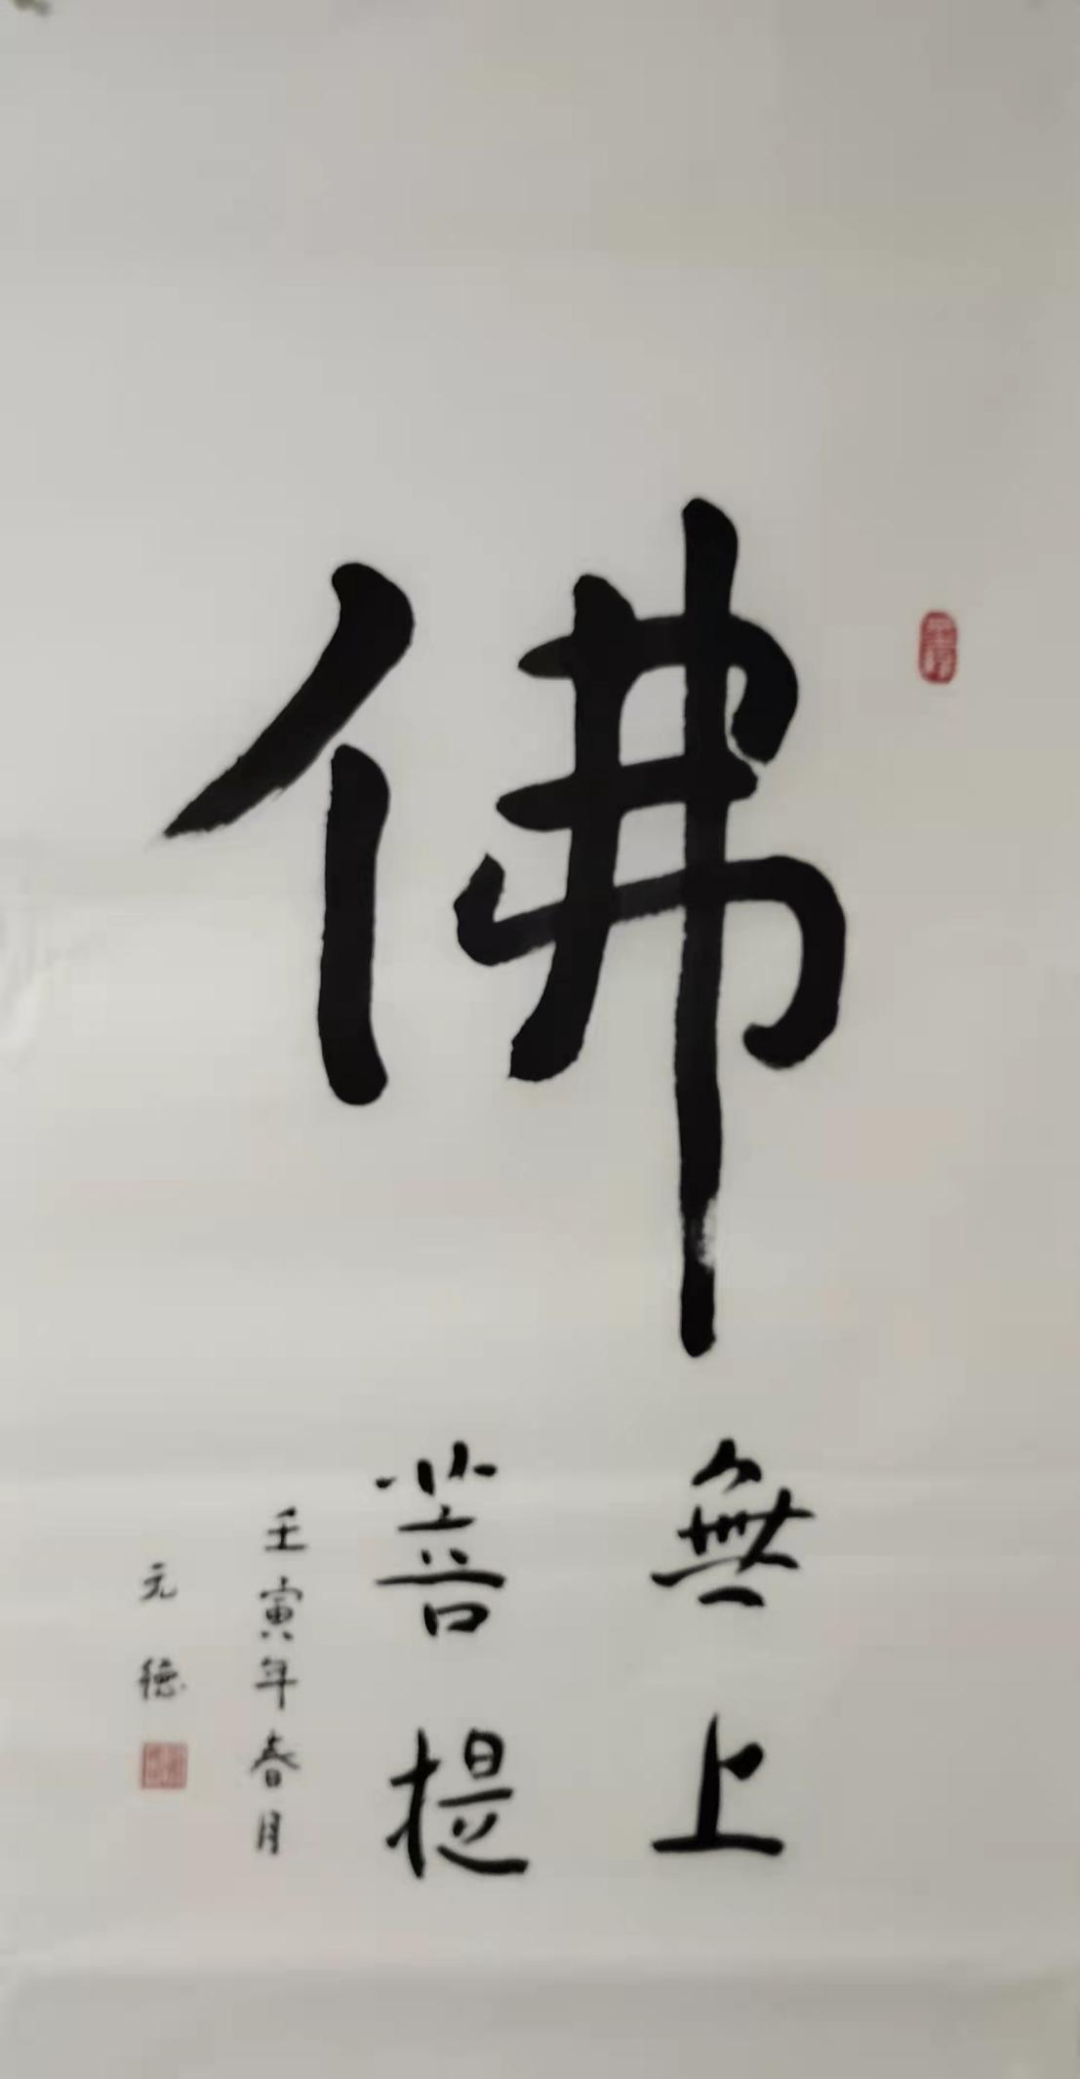 佛
無上
菩提
壬寅年春月
元德